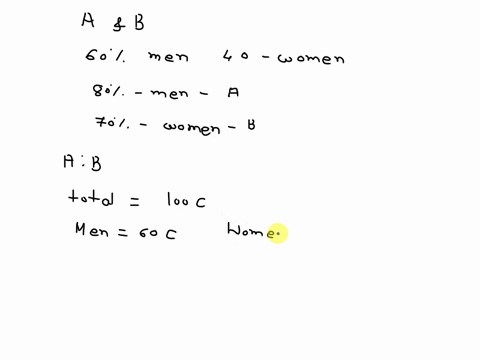 A & B
60% men 40 - women
80% - men - A
70% - women - B
A : B
total = 100 C
Men = 60 C Wome